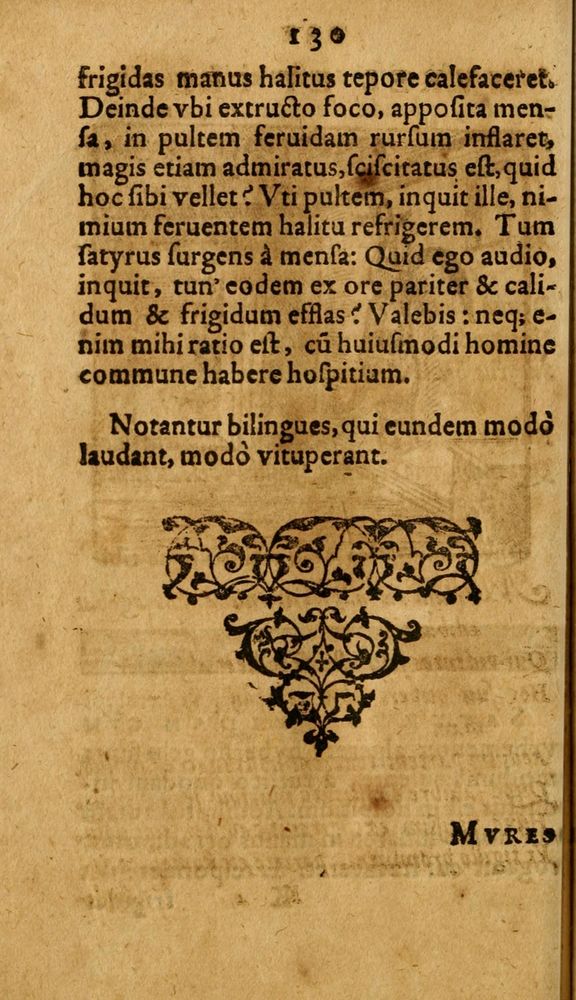 130
frigidas manus halitus tepore calefaceret.
Deinde vbi extructo foco, apposita men-
sa, in pultem feruidam rursum inflaret,
magis etiam admiratus, sciscitatus est, quid
hoc sibi vellet? Vti pultem, inquit ille, ni-
mium feruentem halitu refrigerem. Tum
satyrus surgens à mensa: Quid ego audio,
inquit, tun' eodem ex ore pariter & cali-
dum & frigidum efflas? Valebis: neq; e-
nim mihi ratio est, cū huiusmodi homine
commune habere hospitium.
Notantur bilingues, qui eundem modò
laudant, modò vituperant.
MVRES